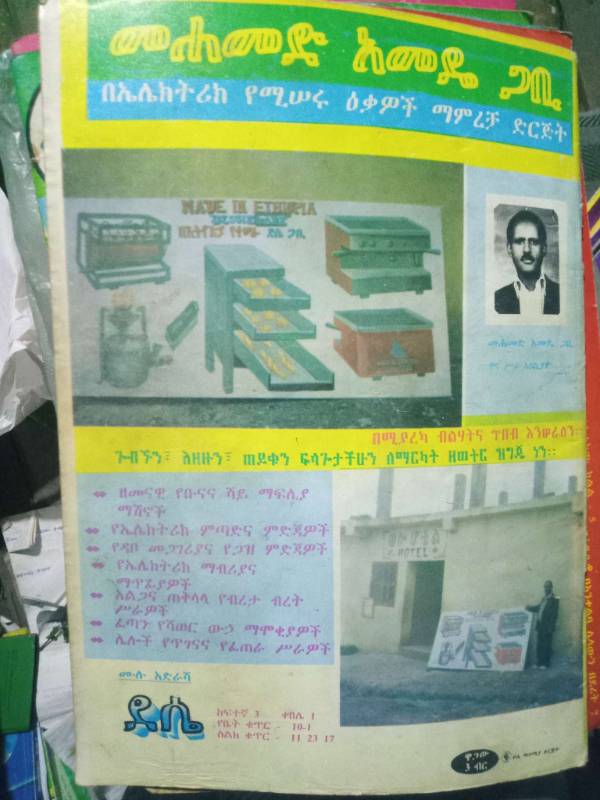 መሐመድ አመዴ ጋቢ
በኤሌክትሪክ የሚሠሩ ዕቃዎች ማምረቻ ድርጅት
MADE IN ETHIOPIA
በኢትዮጵያ የተሠሩ ደሴ ጋቢ
መሐመድ አመዴ ጋቢ
በሚያረካ ብልሃትና ጥበብ እንሠራለን።
ጉብኙን፣ እዘዙን፣ ጠይቁን ፍላጎታችሁን ለማርካት ዘወትር ዝግጁ ነን።
ዘመናዊ የቡናና ሻይ ማፍሊያ
ማሽኖች
የኤሌክትሪክ ምጣድና ምድጃዎች
የዳቦ መጋገሪያና የጋዝ ምድጃዎች
የኤሌክትሪክ ማብሪያና
ማጥፊያዎች
አልጋና ጠቅላላ የብረታ ብረት
ሥራዎች
ፈጣን የሻወር ውኃ ማሞቂያዎች
ሌሎች የጥገናና የፈጠራ ሥራዎች
HOTEL
ሙሉ አድራሻ
ደሴ
ከፍተኛ 3 ቀበሌ 1
የቤት ቁጥር - 10-1
ስልክ ቁጥር - 11 23 17
ዋጋው
3 ብር